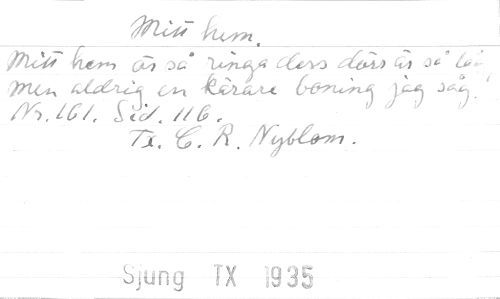 Mitt hem.
Mitt hem är så ringa dess dörr är så låg
men aldrig en kärare boning jag såg.
Nr. 161. Sid. 116.
Tx. C. R. Nyblom.
Sjung TX 1935